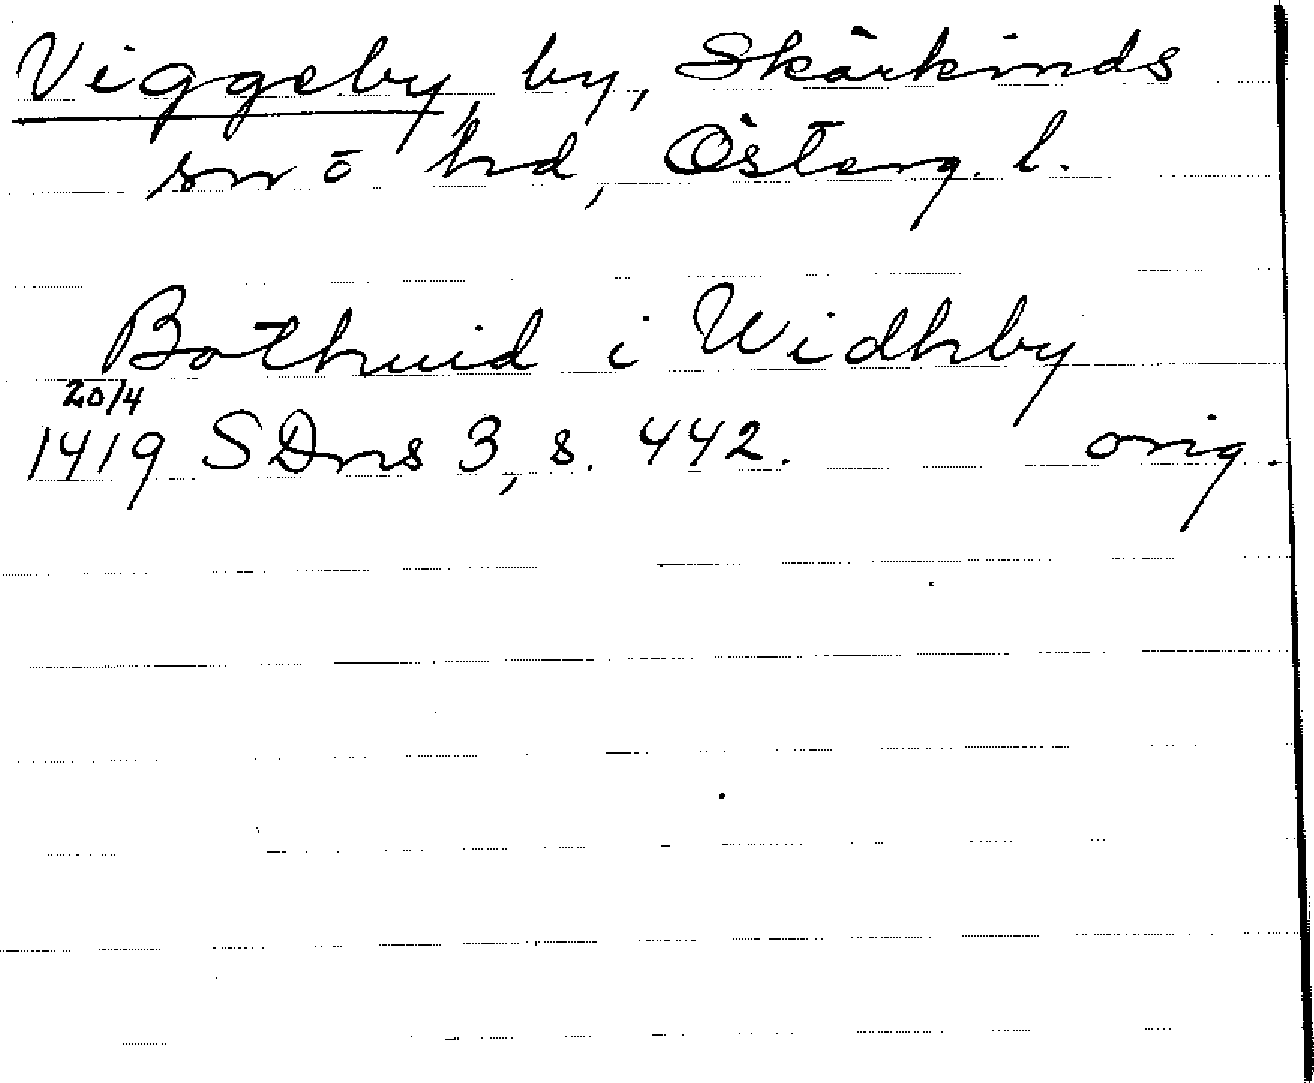 Viggeby, by, Skärkinds
sn o hd, Österg. l.
Bothuid i Widhby
20/4
1419 SDns 3, s. 442. orig.